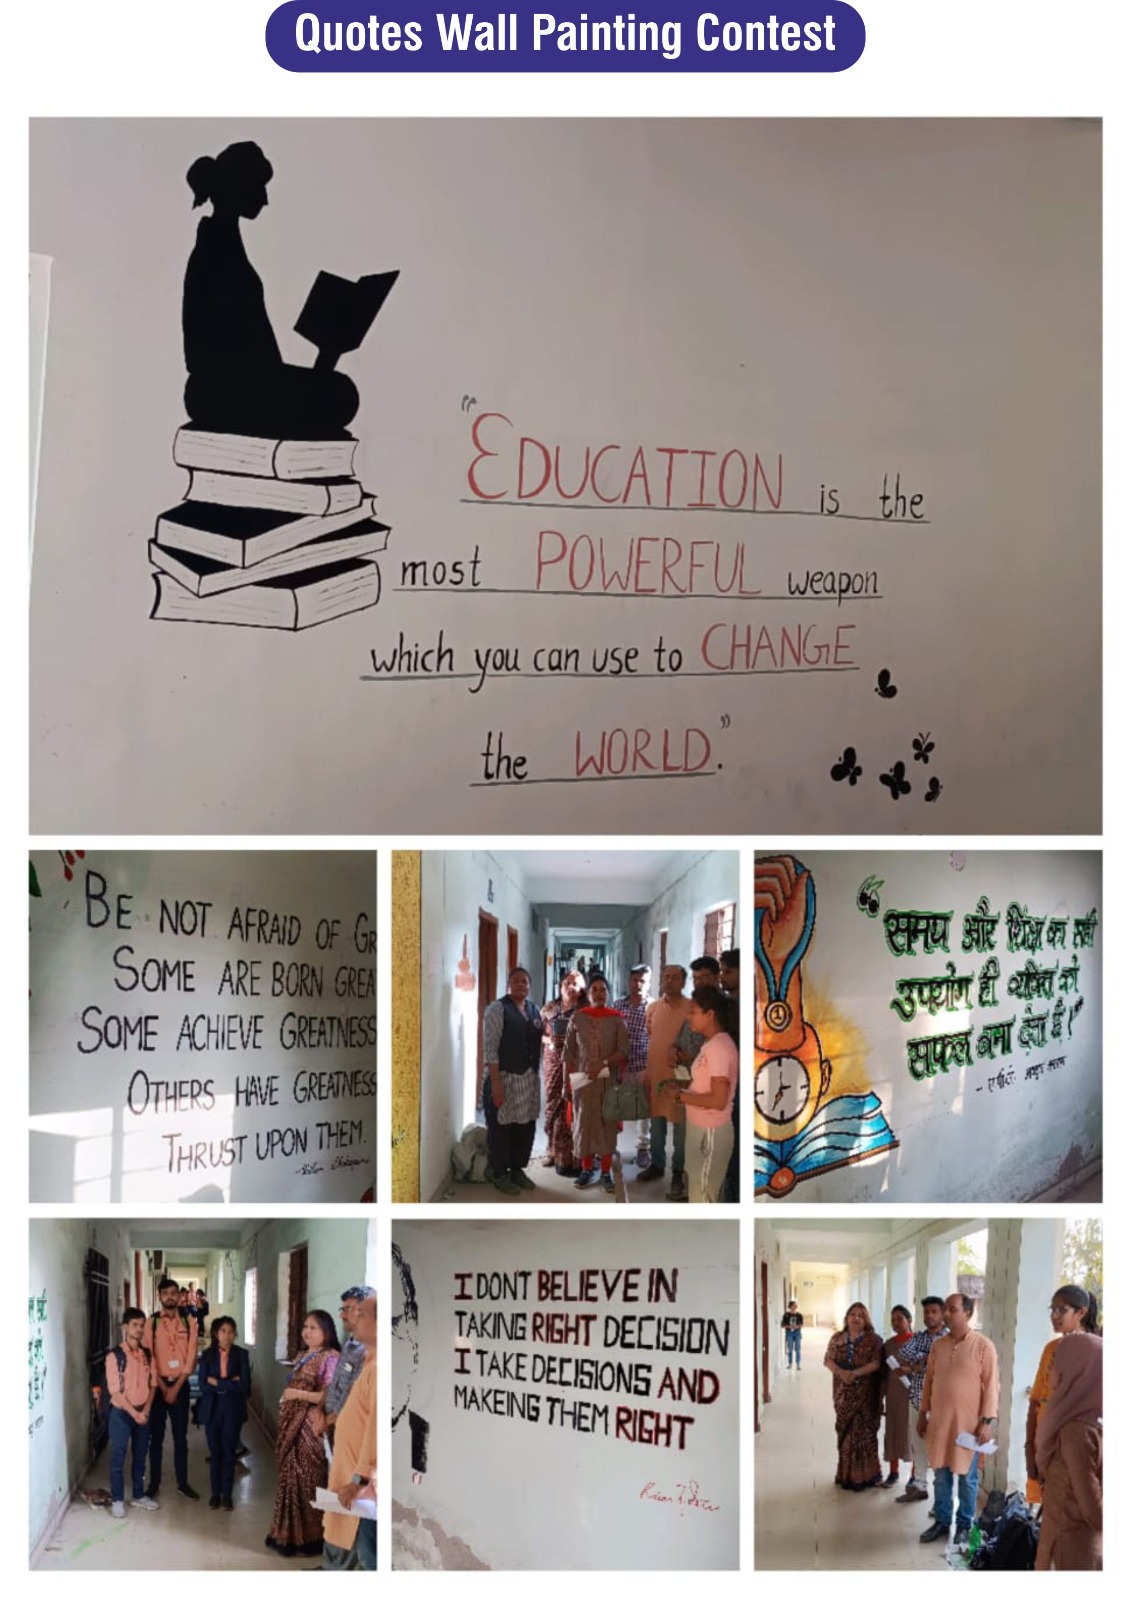 Quotes Wall Painting Contest
"EDUCATION is the
most POWERFUL weapon
which you can use to CHANGE
the WORLD."
BE NOT AFRAID OF GR
SOME ARE BORN GREA
SOME ACHIEVE GREATNESS
OTHERS HAVE GREATNESS
THRUST UPON THEM.
“समय और शिक्षा का सही
उपयोग ही व्यक्ति को
सफल बना देता है!”
I DON'T BELIEVE IN
TAKING RIGHT DECISION
I TAKE DECISIONS AND
MAKEING THEM RIGHT